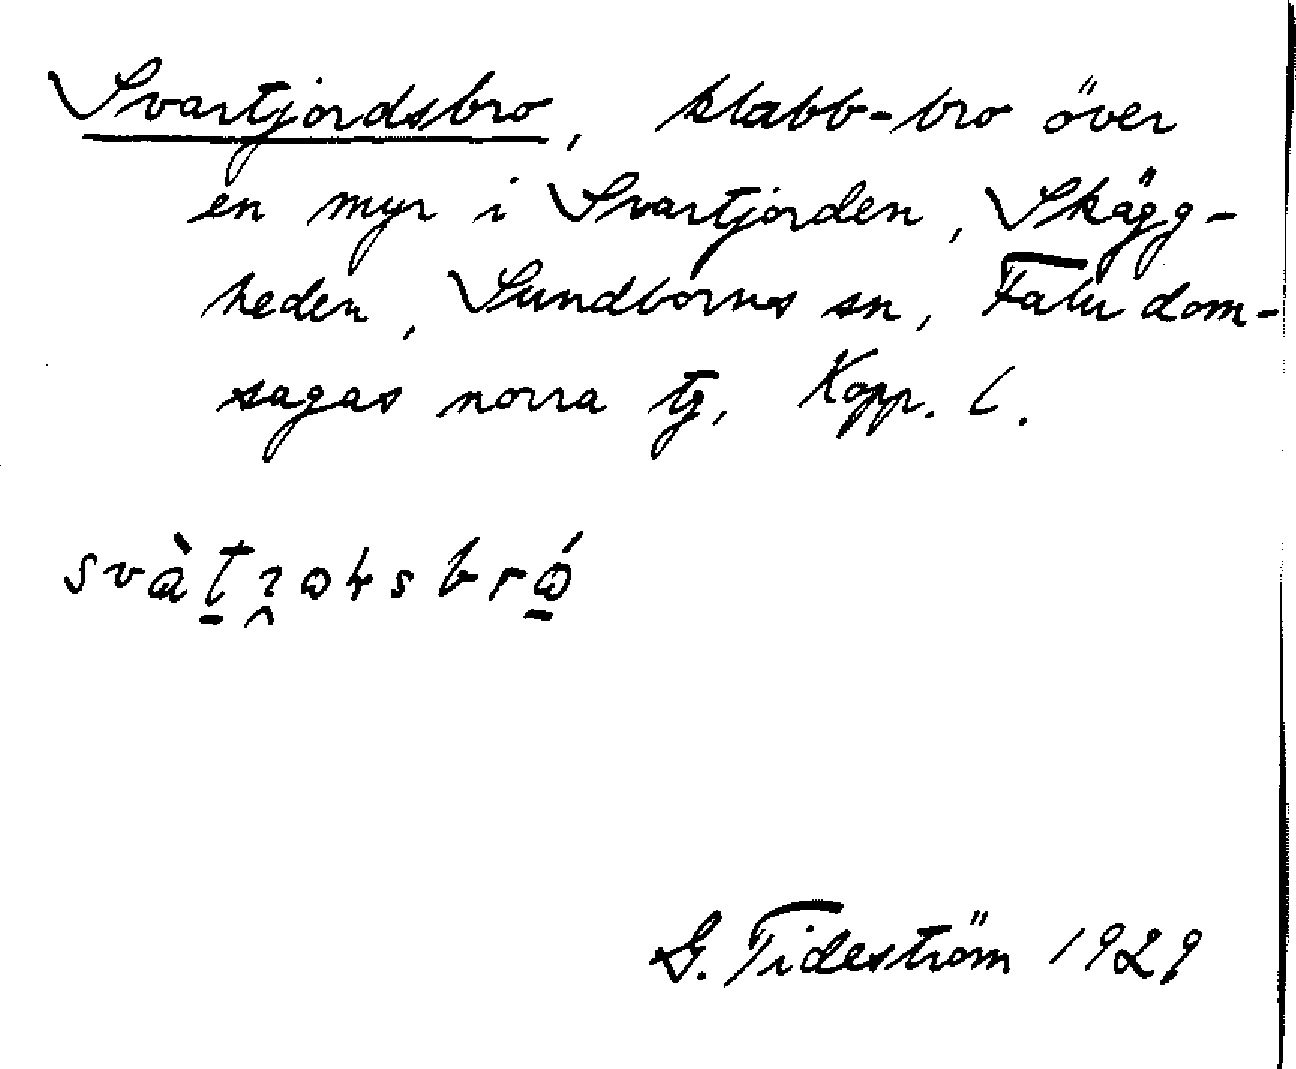 Svartjordsbro, klabb-bro över
en myr i Svartjorden, Skägg-
heden, Sundborns sn, Falu dom-
sagas norra tg, Kopp. l.
G. Tideström 1929